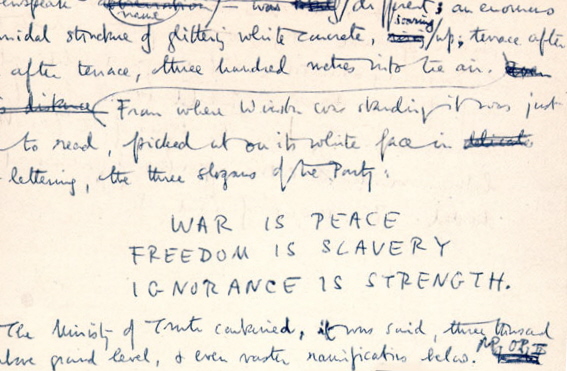 Newspeak name — was different; an enormous
pyramidal structure of glittering white concrete, soaring up, terrace after
after terrace, three hundred metres into the air.
From where Winston was standing it was just
to read, picked out on its white face in delicate
lettering, the three slogans of the Party:
WAR IS PEACE
FREEDOM IS SLAVERY
IGNORANCE IS STRENGTH.
The Ministry of Truth contained, it was said, three thousand
above ground level, & even vaster ramifications below.